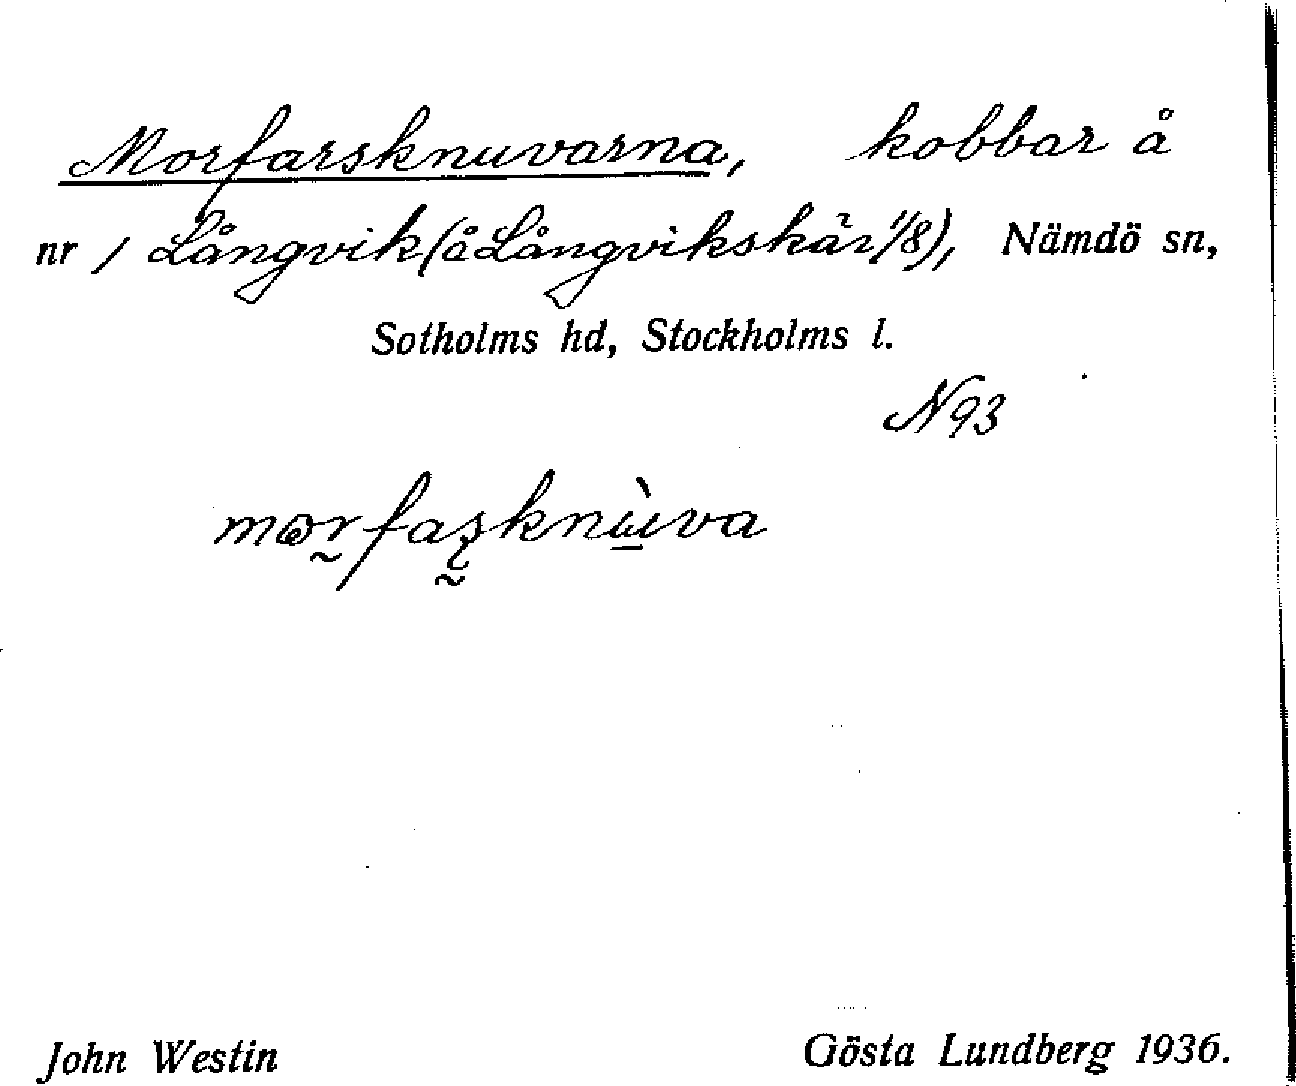 Morfarsknuvarna, kobbar å
nr 1 Långvik (å Långvikskär 1/8), Nämdö sn,
Sotholms hd, Stockholms l.
N93
John Westin Gösta Lundberg 1936.